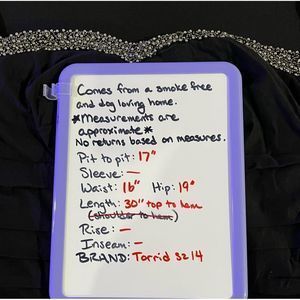 Comes from a smoke free
and dog loving home.
*Measurements are
approximate*
No returns based on measures.
Pit to pit: 17"
Sleeve: —
Waist: 16" Hip: 19"
Length: 30" top to hem
(shoulder to hem)
Rise: —
Inseam: —
BRAND: Torrid Sz 14